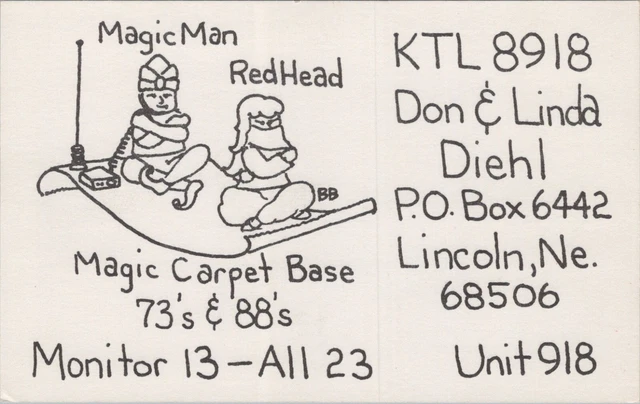 Magic Man
Red Head
BB
Magic Carpet Base
73's & 88's
Monitor 13 - All 23
KTL 8918
Don & Linda
Diehl
P.O. Box 6442
Lincoln, Ne.
68506
Unit 918